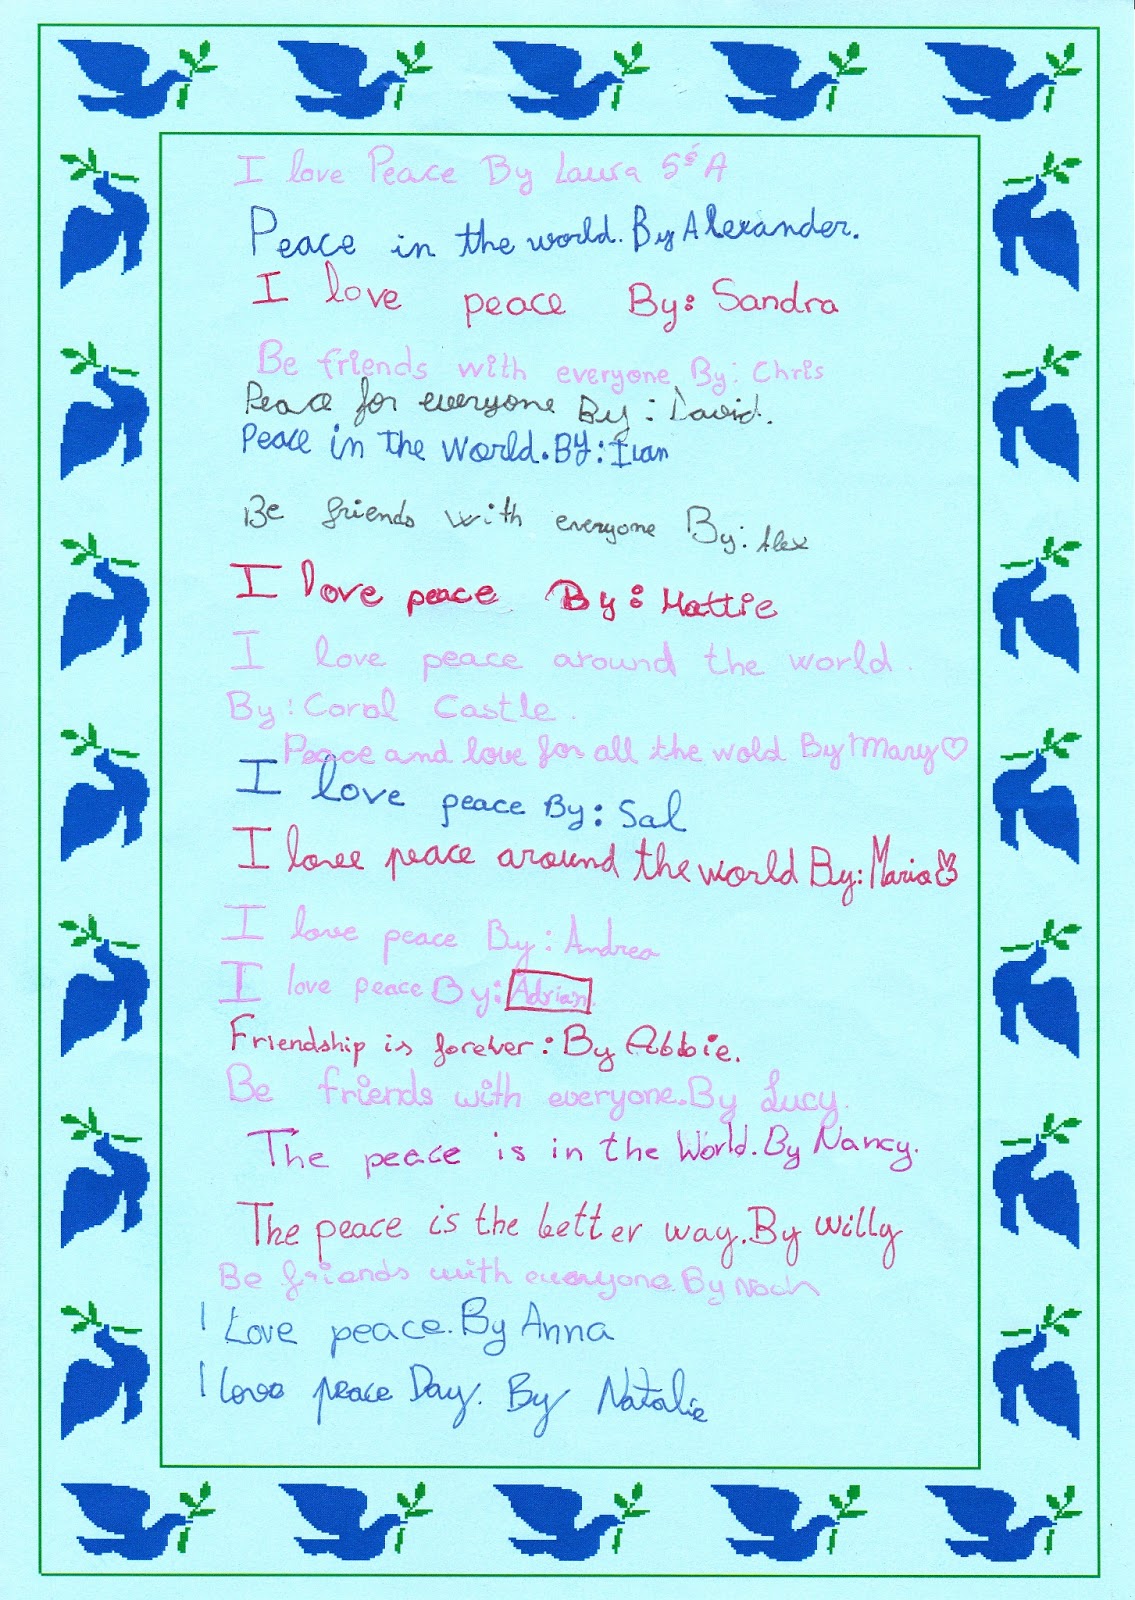 I love Peace By Laura 5é A
Peace in the world. By Alexander.
I love peace By: Sandra
Be friends with everyone By: Chris
Peace for everyone By: David.
Peace in the World. BY: Ivan
Be friends with everyone By: Alex
I love peace By: Mattie
I love peace around the world.
By: Coral Castle.
Peace and love for all the wold By Mary♡
I love peace By: Sal
I love peace around the world By: Maria
I love peace By: Andrea
I love peace By: Adrian.
Friendship is forever: By Abbie.
Be friends with everyone. By Lucy.
The peace is in the World. By Nancy.
The peace is the better way. By Willy
Be friends with everyone. By Noah
I Love peace. By Anna
I Love peace Day. By Natalie